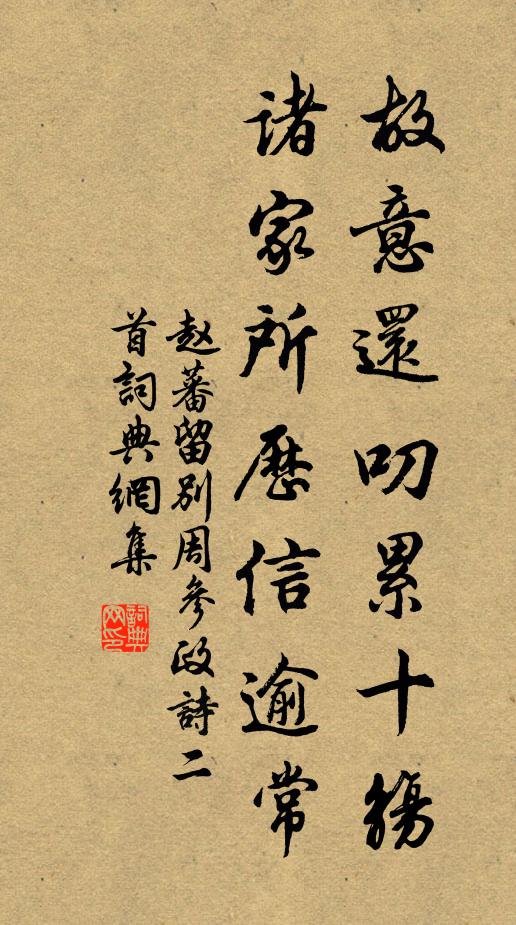 故意還叨累十觴
諸家所歷信逾常
赵蕃留別周參政詩二
首詞典網集
詞典网印